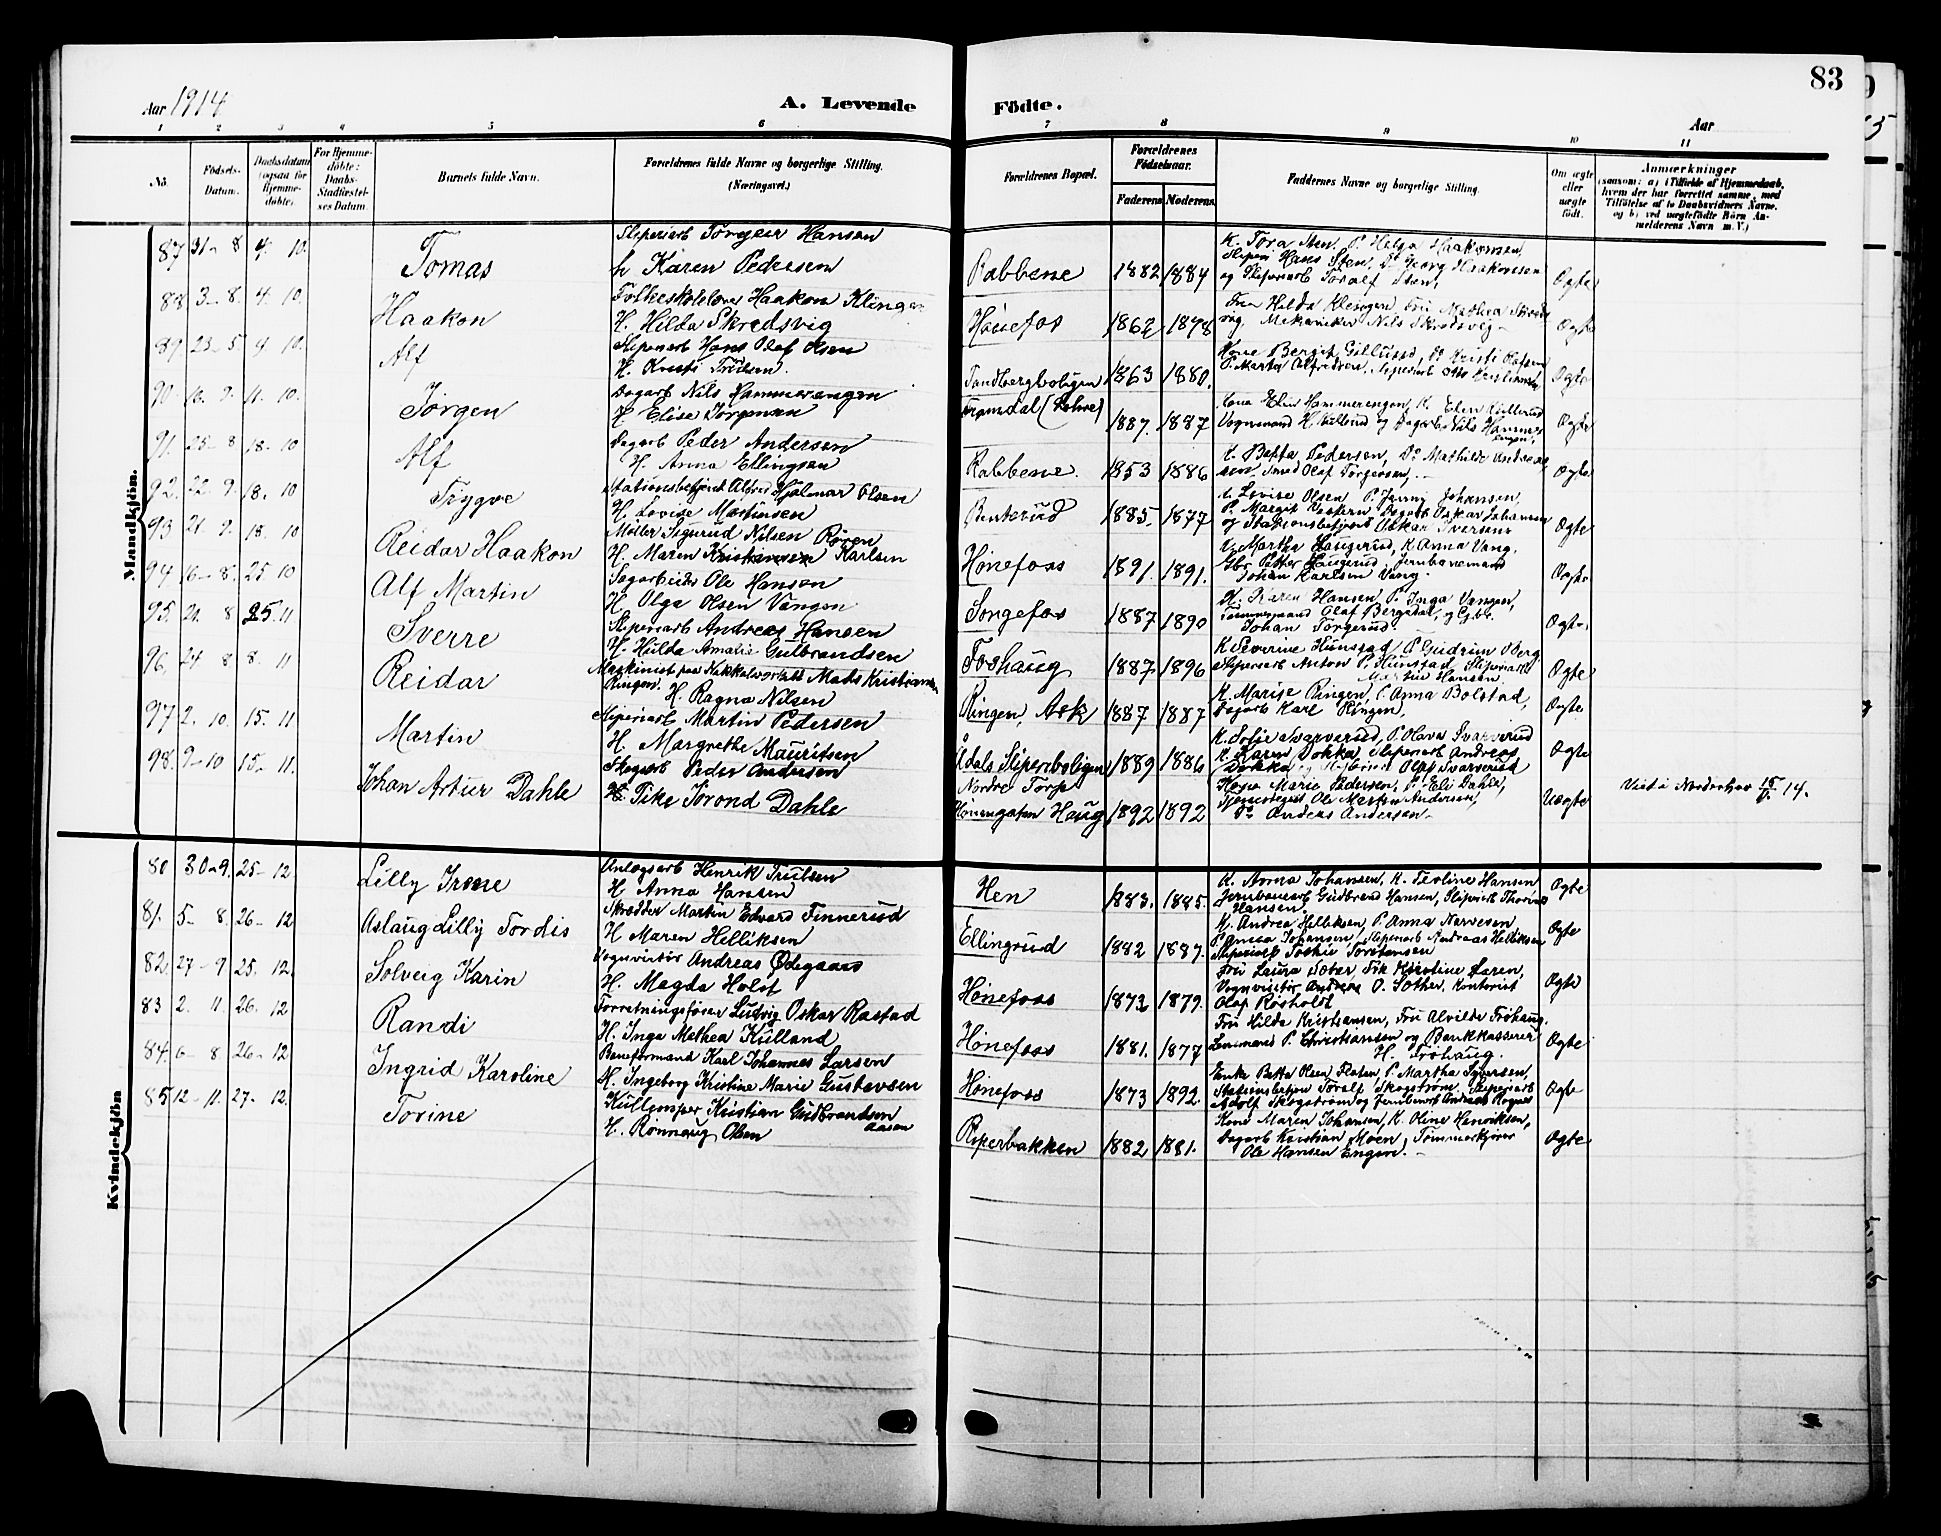 83
Aar 1914
A. Levende Födte.
Aar
1 2 3 4 5 6 7 8 9 10 11
No. Födsels-Datum. Daabsdatum (ogsaa for Hjemme-döbte). For Hjemme-döbte: Daabs-Stadfæstel-ses Datum. Barnets fulde Navn. Forældrenes fulde Navne og borgerlige Stilling. (Næringsvei.) Forældrenes Bopæl. Forældrenes Födselsaar. Faderens Moderens Faddernes Navne og borgerlige Stilling. Om ægte eller uægte födt. Anmærkninger (saasom: a) i Tilfælde af Hjemmedaab, hvem der har forrettet samme, med Tilföielse af to Daabsvidners Navne, og b) ved uægtefödte Börn An-melderens Navn m. V.)
Mandkjön.
87 31-8 4. 10. Tomas Sliperiarb Torgeir Hansen
h Karen Pedersen Rabbene 1882 1884 K. Tora Sten, P. Helga Haakonsen,
Hans Sten, Do Georg Haakonsen
og Sliperiarb Toralf Sten, Ægte
88. 3-8. 4. 10. Haakon Folkeskolelærer Haakon Klingen
H. Hilda Skredsvig Hönefos 1862 1878 Fru Mathea
Mekaniker Nils Skredsvig- Ægte
89 23-5 4. 10. Alf Sliperiarb Hans Olaf Olsen
H. Kristi Trulsen. Tandbergboligen 1863 1880. Kone Bergit Gillund, Do Kristi Olsen
P. Marta Alfredsen, Sliperiarb Otto Kristiansen Ægte
90. 10. 9. 11. 10. Jörgen Dagarb Nils Hammerengen
H Elise Jörgensen 1887. 1887 Kone Elen Hammerengen, K. Elen Kullerud
Vognmand H. Kullerud og Dagarb Nils Hammer
engen, Ægte
91. 25-8 18. 10 Alf Dagarb Peder Andersen
H. Anna Ellingsen Rabbene. 1853 1886 K. Betta Pedersen, Do Mathilde
Smed Olaf Torgersen, Ægte
92. 22-9. 18. 10 Trygve Stationsbetjent Alfred Hjalmar Olsen
H. Lovise Martinsen Benterud 1885. 1877 K. Lovise Olsen P. Jenny Johansen
P. Margit Dagarb Oskar Johansen
og Stationsbetjent Oskar Iversen Ægte
93. 21 9. 18. 10 Reidar Haakon Möller Sigurd Nilsen Rören
H. Maren Kristiansen Karlsen Hönefoss 1891. 1891. K. Martha Haugerud, K Anna Vang.
Gbr Petter Haugerud, Jernbanemand
Johan Karlsen Vang. Ægte
94 16-8. 25. 10 Alf Martin Sagarbeider Ole Hansen
H Olga Olsen Vangen Songefos 1887 1890 K. Karen Hansen, P. Inga Vangen,
Tömmermand Olaf Bergsdal, og Gbr.
Johan Torgerud. Ægte,
95. 21. 8 25. 11 Sverre Sliperiarb Andreas Hansen
H. Hulda Amalie Gulbrandsen Foshaug 1887 1896 K Severine Hunstad, P. Gudrun Oberg
Sliperiarb Anton P. Hunstad, Sliperiarb
Martin Hansen. Ægte
96. 24 8 8. 11 Reidar Maskinist paa Nakkalværkstad Mads Kristiansen
Ringen. H. Ragna Nilsen Ringen, Ask 1887 1887 K. Marise Ringen, P. Anna Bolstad,
Dagarb Karl Ringen, Ægte
97 2. 10. 15. 11 Martin Sliperiarb Martin Pedersen
H. Margrethe Mauritsen Ådals Sliperiboligen 1889 1886 K. Sofie Svarverud, P. Olava Svarverud
K. Karen Dokka, Sliperiarb Andreas
Dokka og Sliperiarb Olaf Svarverud Ægte
98. 9-10 15-11. Johan Artur Dahle Skogarb Peder Andersen
Pike Jörond Dahle Nordre Torp
Hönengaten Haug 1892 1892 Kone Marie Pedersen, P. Eli Dahle,
Tjenestegut Ole Morten Andersen,
Do Anders Andersen- Uægte Viet i Norderhov 15/11 14.
Kvindekjön
80 30-9. 25-12. Lilly Irene Anlægsarb Henrik Trulsen
H. Anna Hansen Hen 1883. 1885. K. Anna Johansen, K. Teoline Hansen
Jernbanearb Gudbrand Hansen, Sliperiarb Thorvald
Hansen. Ægte
81. 5-8. 26-12 Aslaug Lilly Tordis Skrædder Martin Edvard Finnerud
H Maren Helliksen Ellingrud 1882 1887. K. Andrea Helliksen, P. Anna Narvesen
P. Anna Johansen, Sliperiarb Andreas Helliksen
Sliperiarb Torstensen Ægte
82. 27-9 25. 12. Solveig Karin Vognvisitör Andreas Ödegaard
H. Magda Holst Hönefoss 1873 1879. Fru Laura Sother, Frk Kristine Laren,
Vognvisitör Andreas O. Sother, Kontorist
Olaf Rösholdt Ægte
83 2. 11. 26. 12 Randi Forretningsförer Ludvig Oskar Rastad
H. Inga Mathea Kulland Hönefoss 1881. 1877 Fru Hilda Kristiansen, Fru Alvilde Fröhaug.
Lensmand P. Christiansen og Bankkasserer
H. Fröhaug. Ægte
84. 6-8. 26-12 Ingrid Karoline Baneformand Karl Johannes Larsen
H. Ingeborg Kristine Marie Gustavsen Hönefoss 1873 1892. Enke Betta Olsen Flaten, P. Martha Syversen,
Stationsbetjen Toralf Skogström. Sliperiarb
Adolf Skogström og Jernbanearb Andreas Rognes Ægte
85 12-11. 27-12. Torine Kullemper Kristian Gudbrandsen
Aasen
H. Rönnaug Olsen Riperbakken 1882 1881. Kone Maren Johansen, K. Oline Henriksen,
Dagarb Kristian Moen, Tömmerkjörer
Ole Hansen Engen. - Ægte